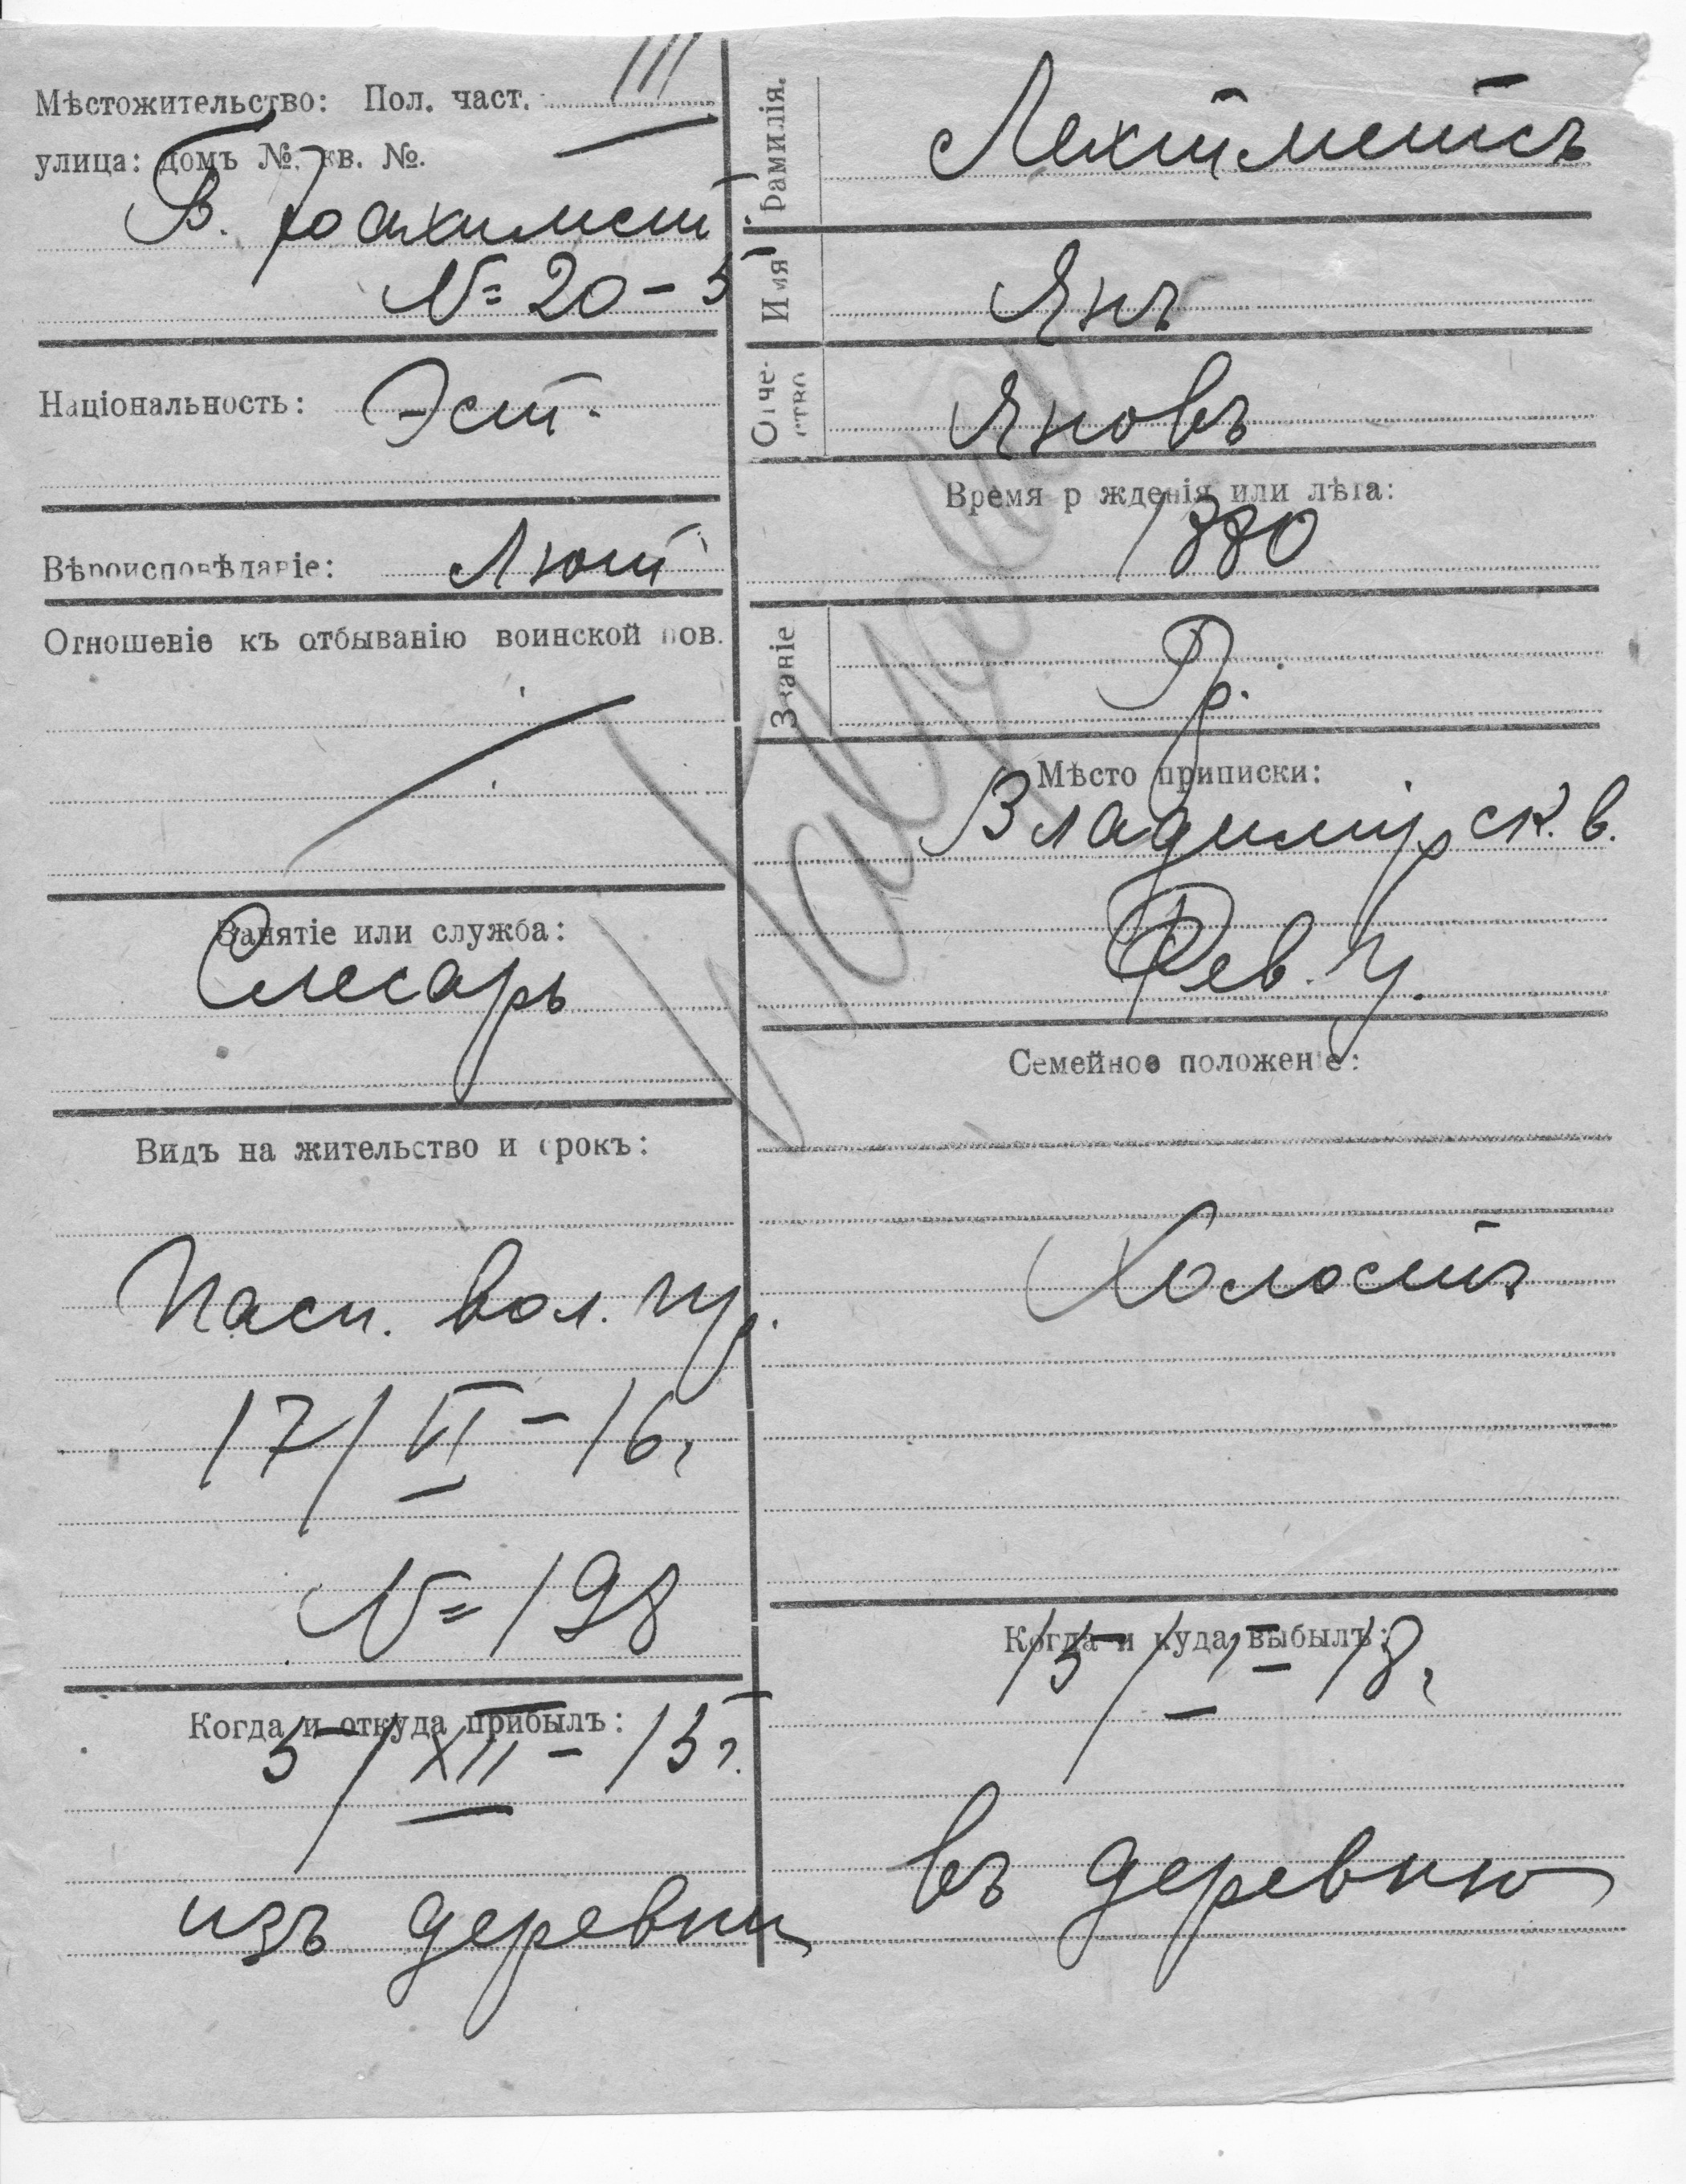 Мѣстожительство: Пол. част. III
улица: домъ №. кв. №.
Б. Іоахимст
№ 20 - 5
Національность: Эст.
Вѣроисповѣданіе: Лют
Отношеніе къ отбыванію воинской пов.
Занятіе или служба:
Слесарь
Видъ на жительство и срокъ:
Пасп. вол. пр.
17/VI - 16 г.
№ 198
Когда и откуда прибылъ:
5/XII - 15 г.
изъ деревни
Фамилія. Лехтметсъ
Имя Янъ
Отчество Яновъ
Время рожденія или лѣта:
1880
Званіе Кр.
Мѣсто приписки:
Владимірск. в.
Фев. у.
Семейное положеніе:
Холостъ
Когда и куда выбылъ:
15/II 18 г.
въ деревню